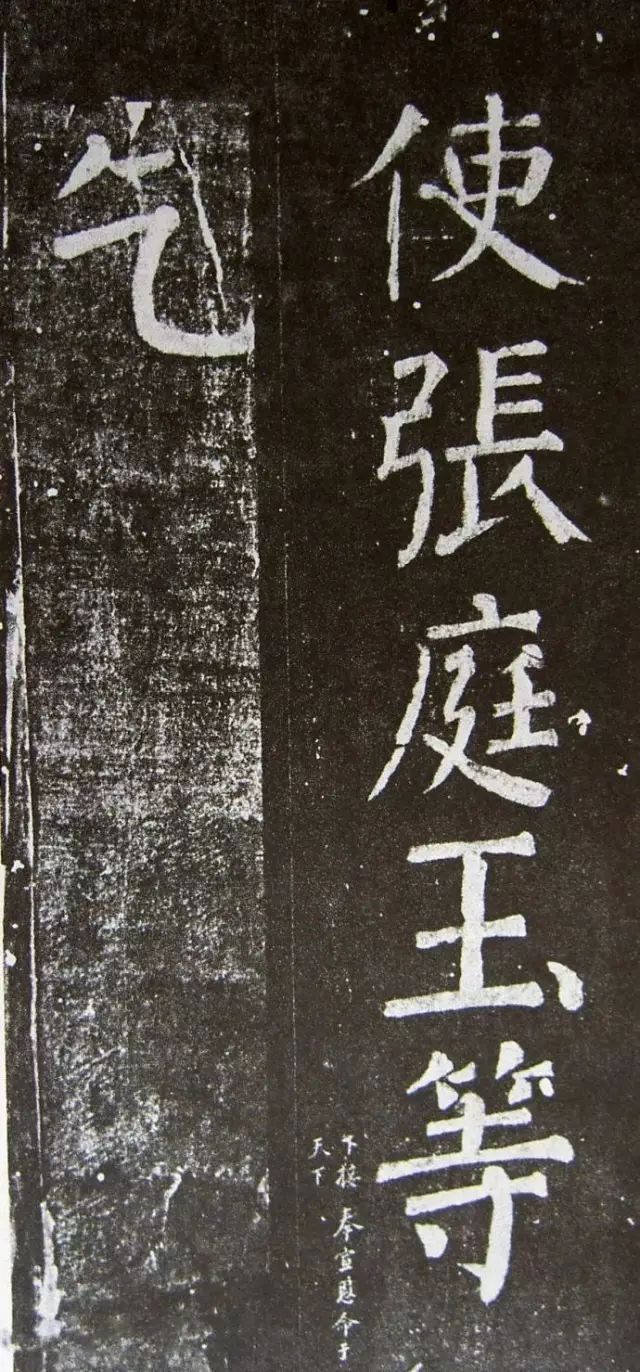 使張庭玉等
下接 奉宣慰命于
天下
乞